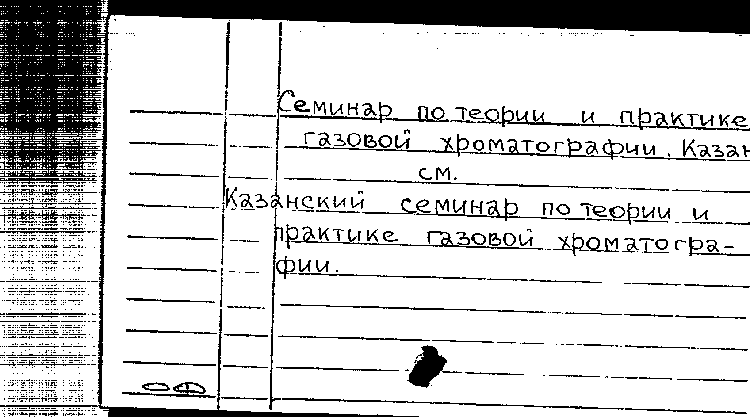 Семинар по теории и практике
газовой хроматографии. Казан
см.
Казанский семинар по теории и
практике газовой хроматогра-
фии.